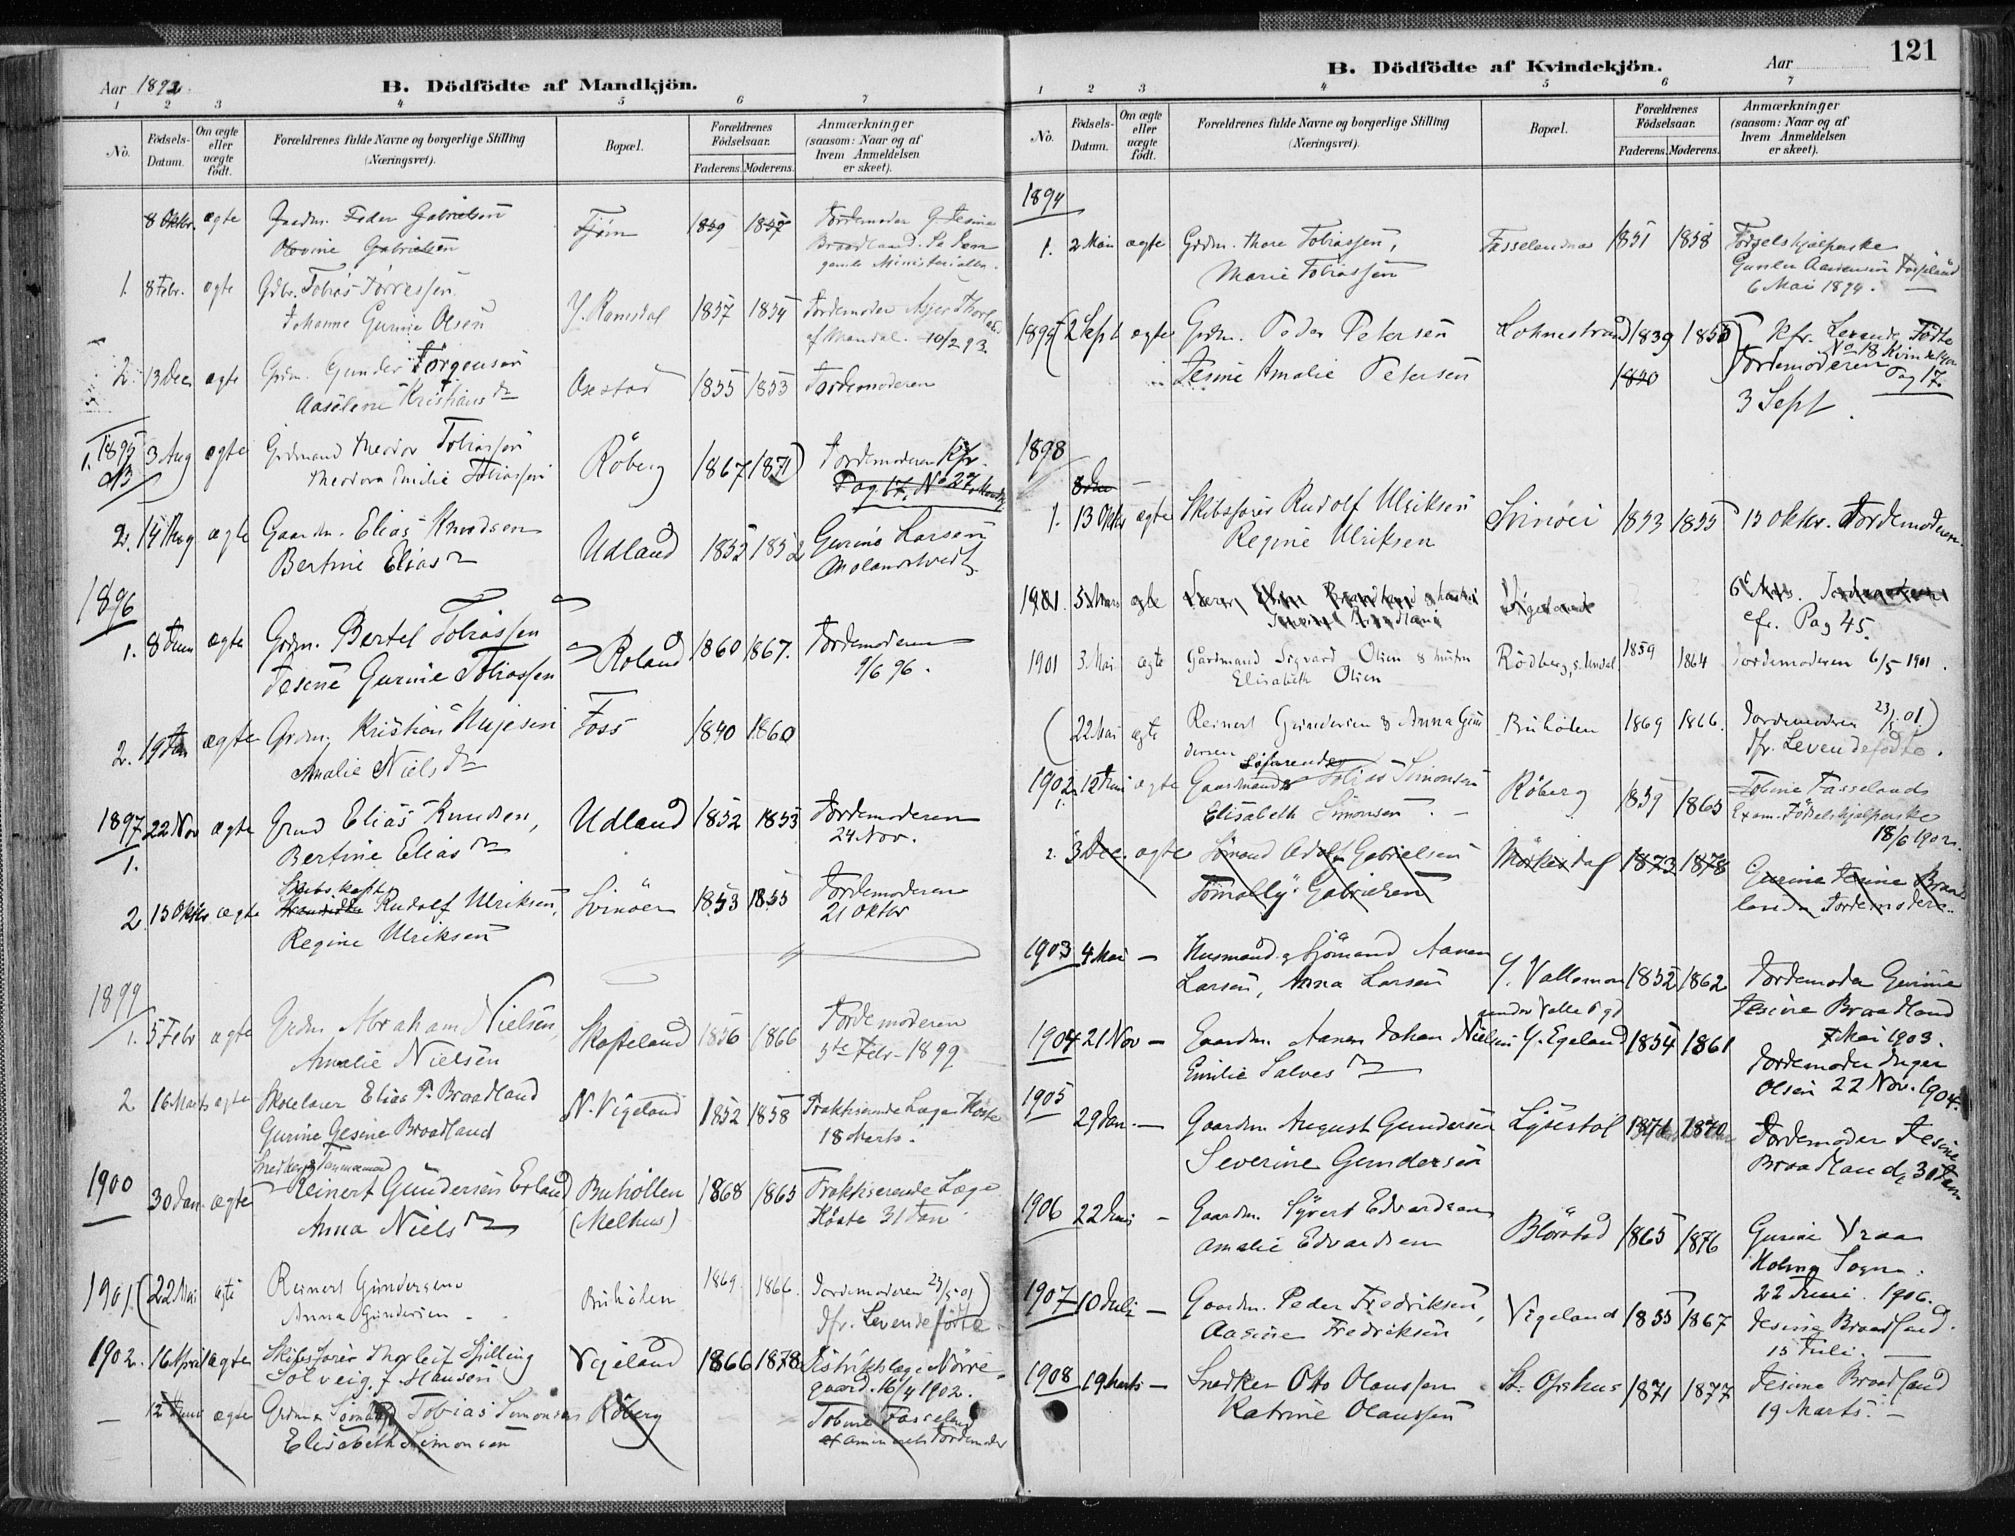 Aar 1892.
B. Dödfödte af Mandkjön.
1 2 3 4 5 6 7
No. Födsels-Datum. Om ægte eller uægte födt. Forældrenes fulde Navne og borgerlige Stilling (Næringsvei). Bopæl. Forældrenes Födselsaar. Faderens. Moderens. Anmærkninger (saasom: Naar og af hvem Anmeldelsen er skeet).
8 Oktbr. ægte Gaardm. Peder Gabrielsen 1859 1857 Jordemoder G Jesine
Gabrielsen Braadland. Se den
gamle Ministerialbo.
1. 8 Febr. ægte Gdbr. Tobias Tørressen
Johanne Gurine Olsen Y. Ramsdal 1857 1854 Jordemoder
af Mandal. 10/2 93.
2. 13 Dec ægte Grdm. Gunder Jörgensen
Aaselene Kristians dr Oxestad 1855 1853 Jordemoderen
1895
1. 3 Aug ægte Grdmand Theodor Tobiassen
Theodora Emilie Tobiassen Röberg 1867 1871) Jordemoderen Kfr.
Pag 17, No 27,
2. 14 Aug ægte Gaardm. Elias Knudsen
Bertine Elias dr Udland 1852 1852 Gurine Larsen
1896
1. 8 Juni ægte Grdm. Bertel Tobiassen
Jesine Gurine Tobiassen Roland 1860 1867. Jordemoderen
9/6 96.
2. 19 Jan ægte Grdm. Kristian
Amalie Niels dr Foss 1840 1860
1897
1. 22 Nov ægte Grmd Elias Knudsen,
Bertine Elias dr Udland 1852 1853 Jordemoderen
24 Nov.
2. 13 Oktbr ægte Skibskapt. Rudolf Ulriksen,
Regine Ulriksen Svinöer 1853 1855 Jordemoderen
21 Oktbr
1899
1. 5 Febr ægte Grdm Abraham Nielsen,
Amalie Nielsen Skofteland 1856 1866 Jordemoderen
5te Febr. 1899
2 16 Marts ægte Skolelærer Elias T. Braadland
Gurine Gesine Braadland N. Vigeland 1852 1858 Praktiserende Læge Höste
18 Marts.
1900
30 Jan. ægte Snedker & Tømmermand
Reinert Gundersen Erland
Anna Niels dr Buhöllen
(Melhus) 1868 1865 Praktiserende Læge
Höste 31 Jan.
1901 (22 Mai ægte Reinert Gundersen
Anna Gundersen Buholen 1869 1866 Jordemoderen 23/5 01)
Jfr. Levendefödte.
1902. 16 April ægte Skibsförer Thorleif Spilling
Solveig f Hansen Vigeland 1866 1878 Distriktslæge Nörre-
gaard. 16/4 1902.
— 12 Juni ægte Grdm & Sömand Tobias Simonsen
Elisabeth Simonsen Röberg Tobine Fasseland
examineret Jordemoder
121
B. Dödfödte af Kvindekjön.
Aar
1 2 3 4 5 6 7
No. Födsels-Datum. Om ægte eller uægte födt. Forældrenes fulde Navne og borgerlige Stilling (Næringsvei). Bopæl. Forældrenes Födselsaar. Faderens. Moderens. Anmærkninger (saasom: Naar og af hvem Anmeldelsen er skeet).
1894
1. 2 Mai ægte Grdm. Thore Tobiassen,
Marie Tobiassen Fasselandnes 1851 1858 Födselshjælperske
Gunder Aanensen Fasseland
6 Mai 1894. —
1894 (2 Sept ægte Grdm. Peder Petersen
Jesine Amalie Petersen Lohnestrand 1839 1850) Kfr. Levende Födte
No 18 Kvindekjön
1840 Jordemoderen Pag 17.
3 Sept.
1898
8 —
1. 13 Oktbr ægte Skibsförer Rudolf Ulriksen
Regine Ulriksen Svinöer 1853 1855 15 Oktbr. Jordemoderen.
1901. 5 Marts ægte Lærer Braadland & hustru
Braadland Vigeland 6 Jordemoderen
cfr. Pag 45.
1901 3 Mai ægte Gårdmand Sigvard Olsen & hustru
Elisabeth Olsen Rödberg, S. Undal 1859 1864 Jordemoderen 6/5 1901.
(22 Mai ægte Reinert Gundersen & Anna Gun
dersen Buholen 1869 1866. Jordemoderen 23/5 01)
Jfr. Levendefödte.
1902
1. 12 Juni ægte Gaardmand & Söfarende Tobias Simonsen
Elisabeth Simonsen. — Röberg 1859 1865 Tobine Fasseland
Exam. Födselshjælperske
18/6 1902.
2. 3 Dec. ægte Sömand Adolf Gabrielsen
Gabrielsen 1873 1878 Gurine Jesine Braad
land Jordemoder.
1903 4 Mai — Husmand & Sjömand Aanen
Larsen, Anna Larsen Y. Vallemoen
under Valle 1852 1862 Jordemoder Gurine
Jesine Braadland
7 Mai 1903.
1904 21 Nov — Gaardm. Aanen Johan Nielsen
Emilie Salves dr Y. Egeland 1854 1861 Jordemoder Inger
Olsen 22 Nov. 1904.
1905
29 Jan. — Gaardm August Gundersen
Severine Gundersen 1871 1870 Jordemoder Jesine
Braadland, 30 Jan
1906 22 Juni — Gaardm. Syvert Edvardsen
Amalie Edvardsen Blörstad 1865 1876 Gurine Vraa
Holme Sogn.
22 Juni. 1906.
1907 10 Juli — Gaardm. Peder Fredriksen,
Aasine Fredriksen Vigeland 1855 1867 Jesine Braadland.
15 Juli. —
1908 19 Marts — Snedker Otto Olaussen
Katrine Olaussen 1871 1877 Jesine Braadland
19 Marts. —